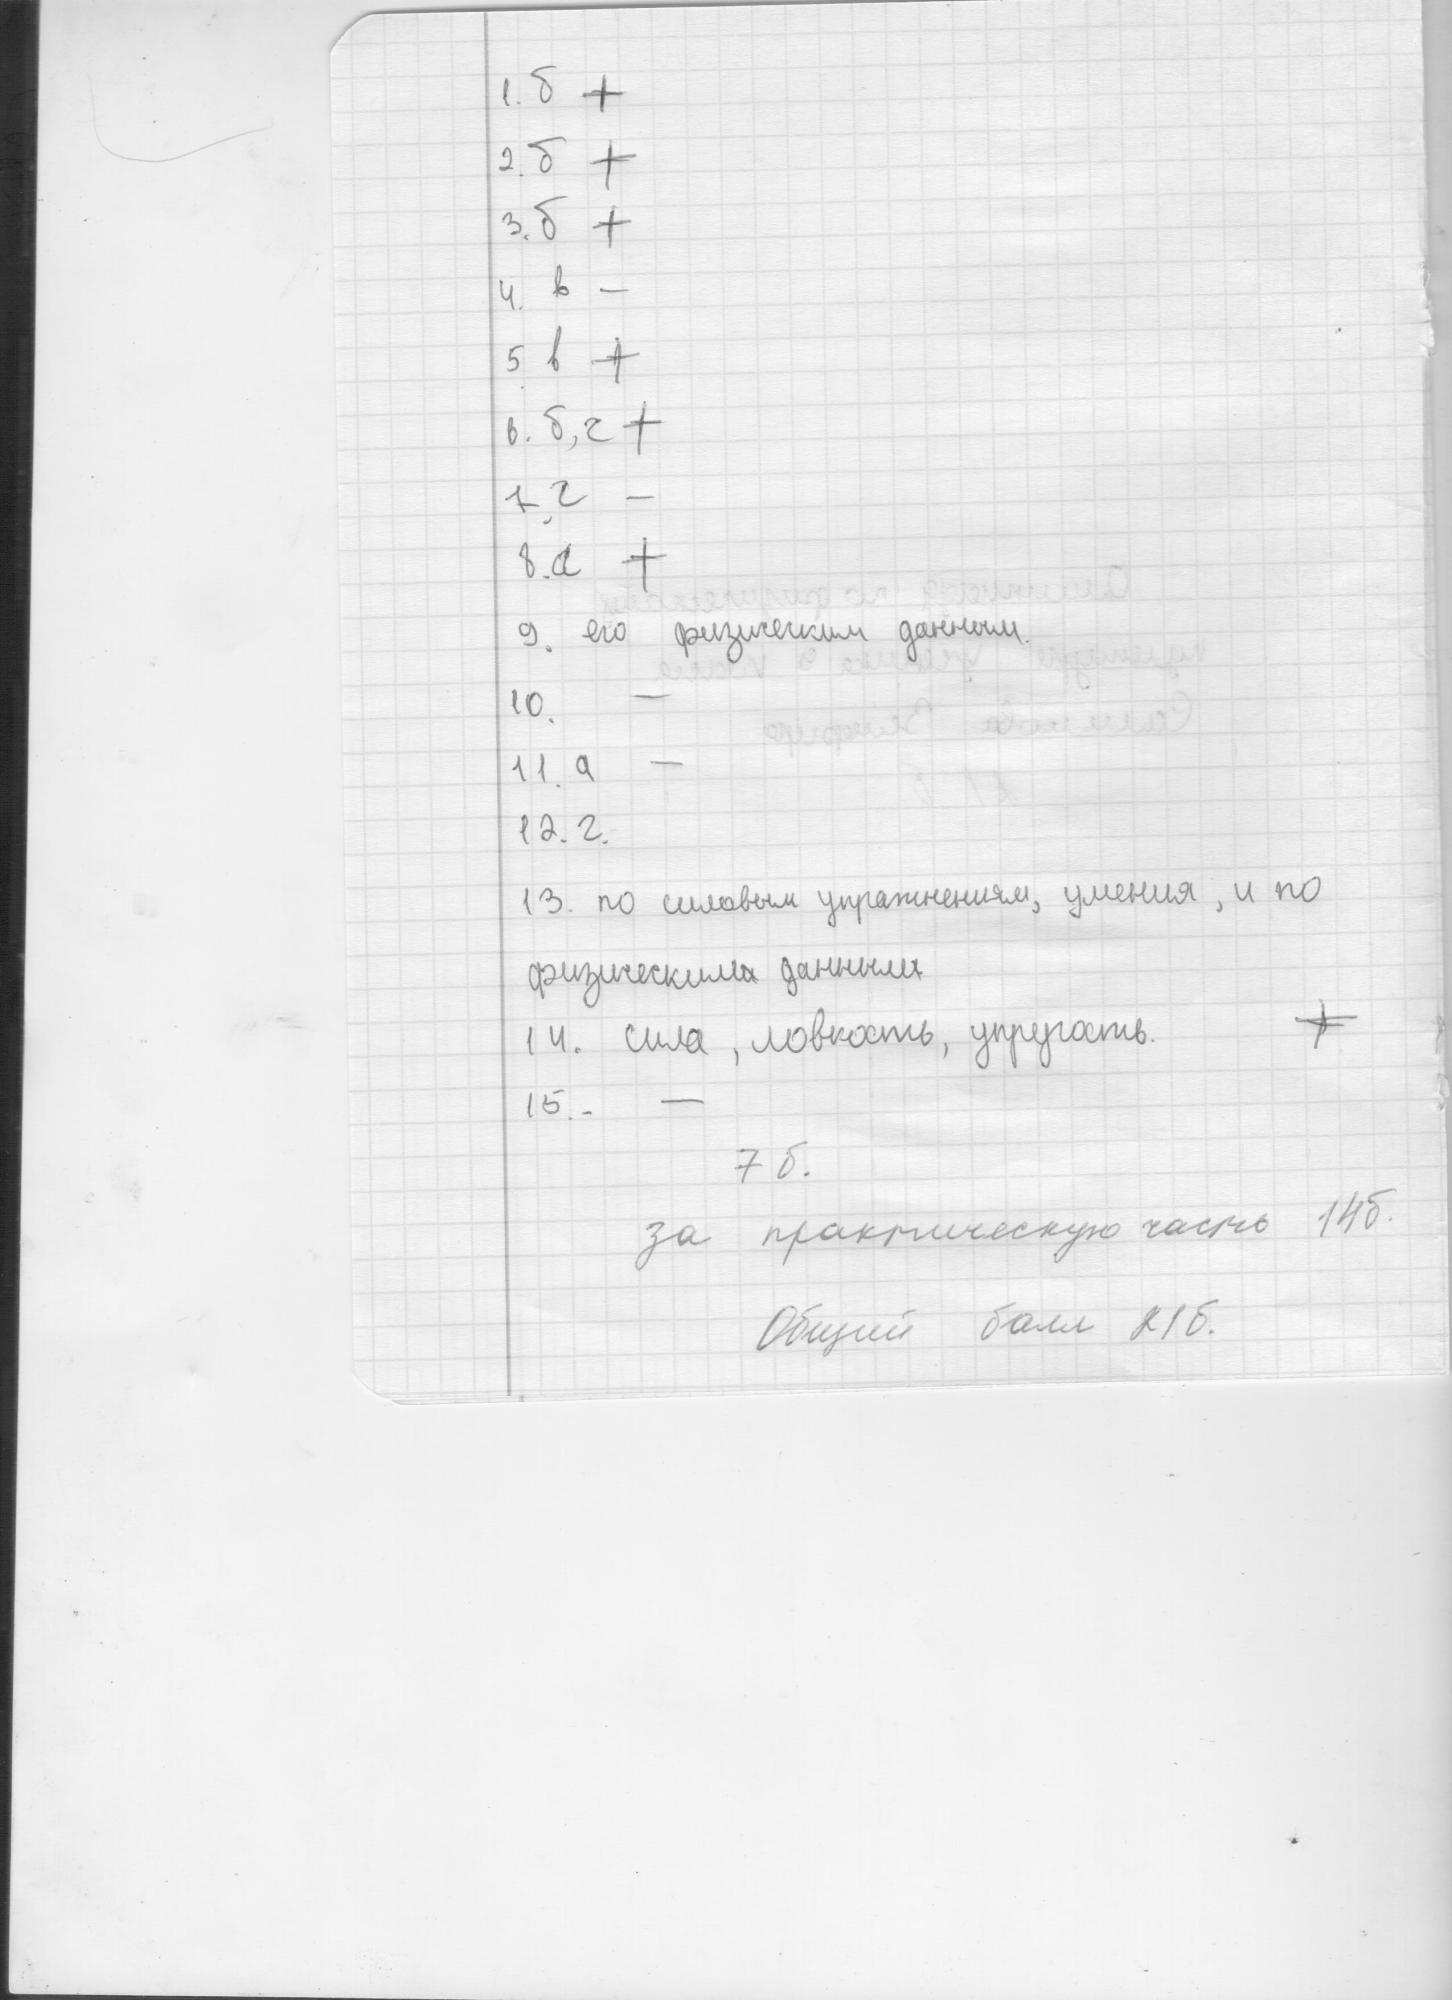 1. б +
2. б +
3. б +
4. в –
5 в +
6. б, г +
7. г –
8. а +
9. его физическим данным.
10. –
11. а –
12. г.
13. по силовым упражнениям, умения, и по
физическими данными
14. сила, ловкость, упругость. +
15. - –
7 б.
за практическую часть 14б.
Общий балл 21б.